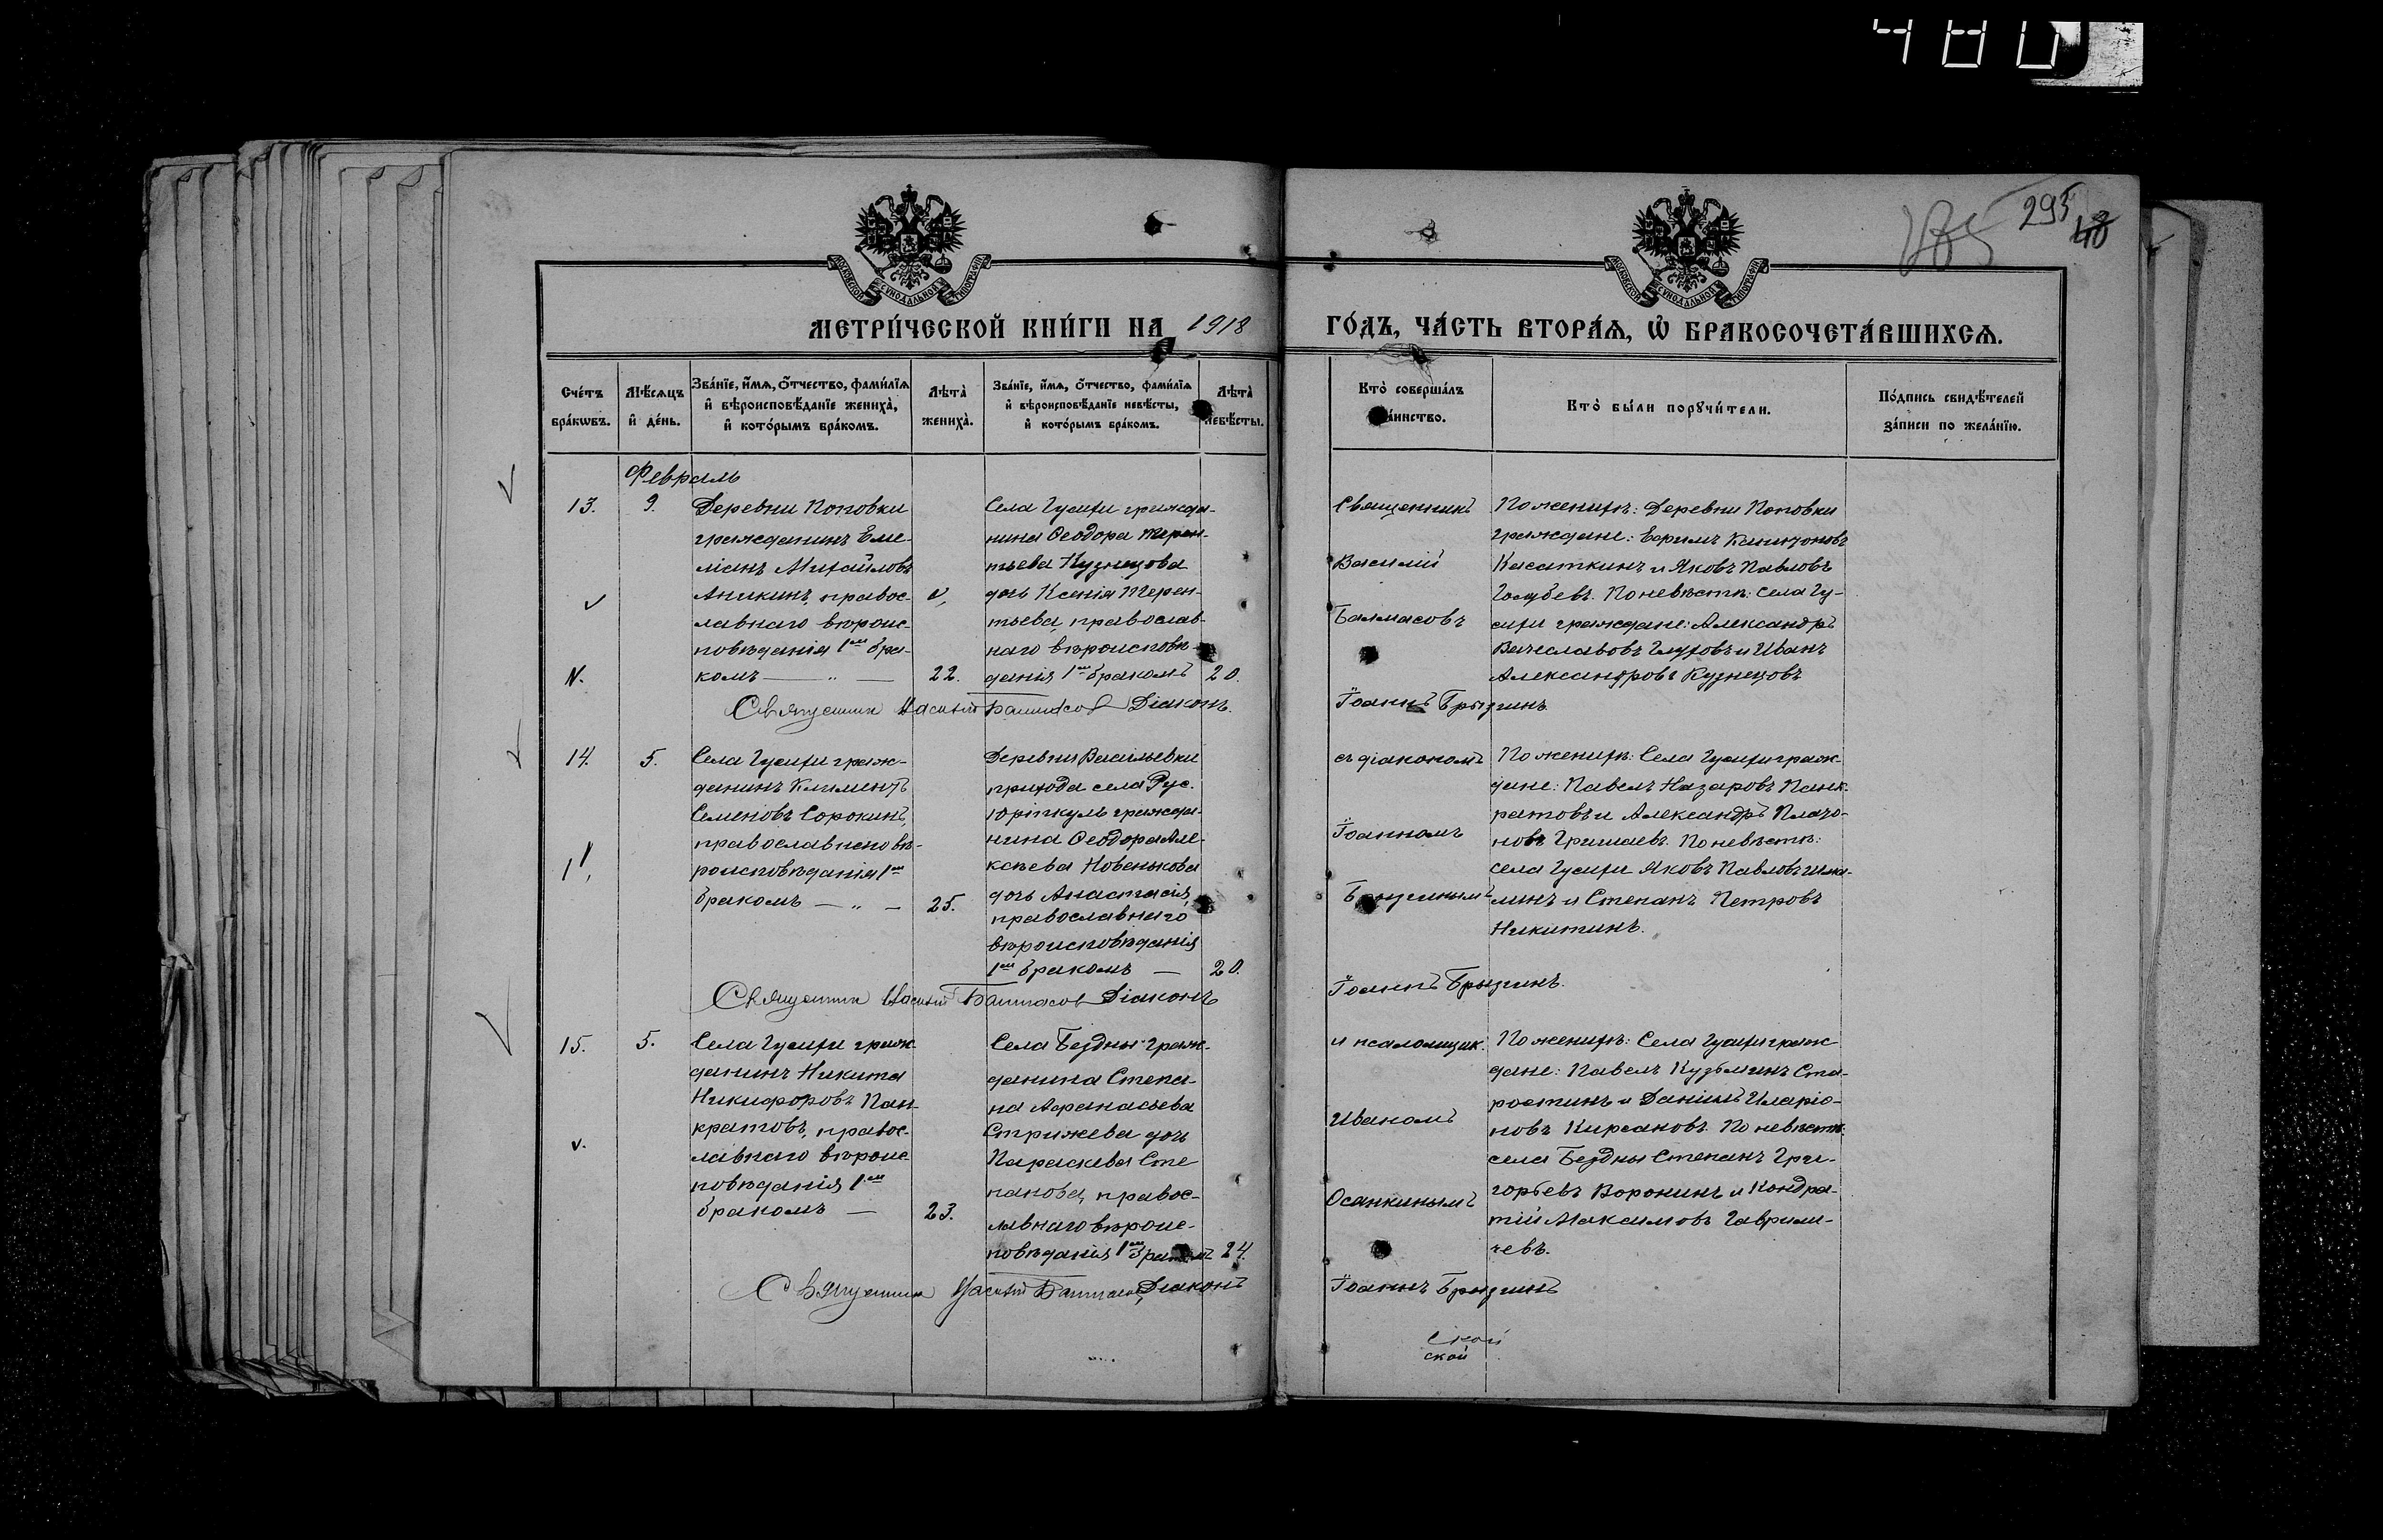 480
295
48
МОСКОВСКОЙ СѴНОДАЛЬНОЙ ТИПОГРАФІИ
МОСКОВСКОЙ СѴНОДАЛЬНОЙ ТИПОГРАФІИ
МЕТРИ́ЧЕСКОЙ КНИ́ГИ НА 1918 ГО́ДЪ, ЧА́СТЬ ВТОРА́Я, Ѡ БРАКОСОЧЕТА́ВШИХСЯ.
Сче́тъ бра́кѡвъ.
Мѣ́сяцъ и де́нь.
Зва́нїе, и́мя, ѻ́тчество, фами́лїя и вѣроисповѣ́данїе жениха̀, и кото́рымъ бра́комъ.
Лѣта̀ жениха̀.
Зва́нїе, и́мя, ѻ́тчество, фами́лїя и вѣроисповѣ́данїе невѣ́сты, и кото́рымъ бра́комъ.
Лѣта̀ невѣ́сты.
Кто̀ соверша́лъ та́инство.
Кто̀ бы́ли порꙋчи́тели.
По́дпись свидѣ́телей за́писи по жела́нїю.
Февраль
13.
9.
Деревни Поповки
гражданинъ Еме-
ліанъ Михайловъ
Аникинъ, правос-
лавнаго вѣроис-
повѣданія 1мъ бра-
комъ — „ —
22.
Села Гусихи гражда-
нина Ѳеодора Терен-
тьева Кузнецова
дочь Ксенія Терен-
тьева, православ-
наго вѣроисповѣ-
данія 1мъ бракомъ
20.
Священникъ
Василій
Балмасовъ
По женихѣ: Деревни Поповки
граждане: Ефимъ
Касаткинъ и Яковъ Павловъ
Голубевъ. По невѣстѣ: села Гу-
сихи граждане: Александръ
Вячеславовъ Глуховъ и Иванъ
Александровъ Кузнецовъ
Священникъ Василій Балмасов Діаконъ
Іоаннъ Брызгинъ.
14.
5.
Села Гусихи граж-
данинъ Климентъ
Семеновъ Сорокинъ,
православнаго вѣ-
роисповѣданія 1мъ
бракомъ — „ —
25.
Деревни Васильевки
прихода села Рус.
Юрткуль гражда-
нина Ѳеодора Але-
ксѣева Новенькова
дочь Анастасія,
православнаго
вѣроисповѣданія
1мъ бракомъ —
20.
съ діакономъ
Іоанномъ
По женихѣ: Села Гусихи граж-
дане: Павелъ Назаровъ Панк-
ратовъ и Александръ Плато-
новъ Гришаевъ. По невѣстѣ:
села Гусихи Яковъ Павловъ
линъ и Степанъ Петровъ
Никитинъ.
Священникъ Василій Балмасов Діаконъ
Іоаннъ Брызгинъ.
15.
5.
Села Гусихи граж-
данинъ Никита
Никифоровъ Пан-
кратовъ, правос-
лавнаго вѣроис-
повѣданія 1мъ
бракомъ —
23.
Села Бездны граж-
данина Степа-
на Афанасьева
Стрижева дочь
Параскева Сте-
панова, правос-
лавнаго вѣроис-
повѣданія 1мъ бракомъ
24.
и псаломщик.
Иваномъ
Осанкинымъ
По женихѣ: Села Гусихи граж-
дане: Павелъ Кузьминъ Ста-
ростинъ и Даніилъ Иларіо-
новъ Кирсановъ. По невѣстѣ:
села Бездны Степанъ Гри-
горьевъ Воронинъ и Кондра-
тій Максимовъ Гаврили-
чевъ.
Священникъ Василій Балмасов, Діаконъ
Іоаннъ Брызгинъ
ской
ской